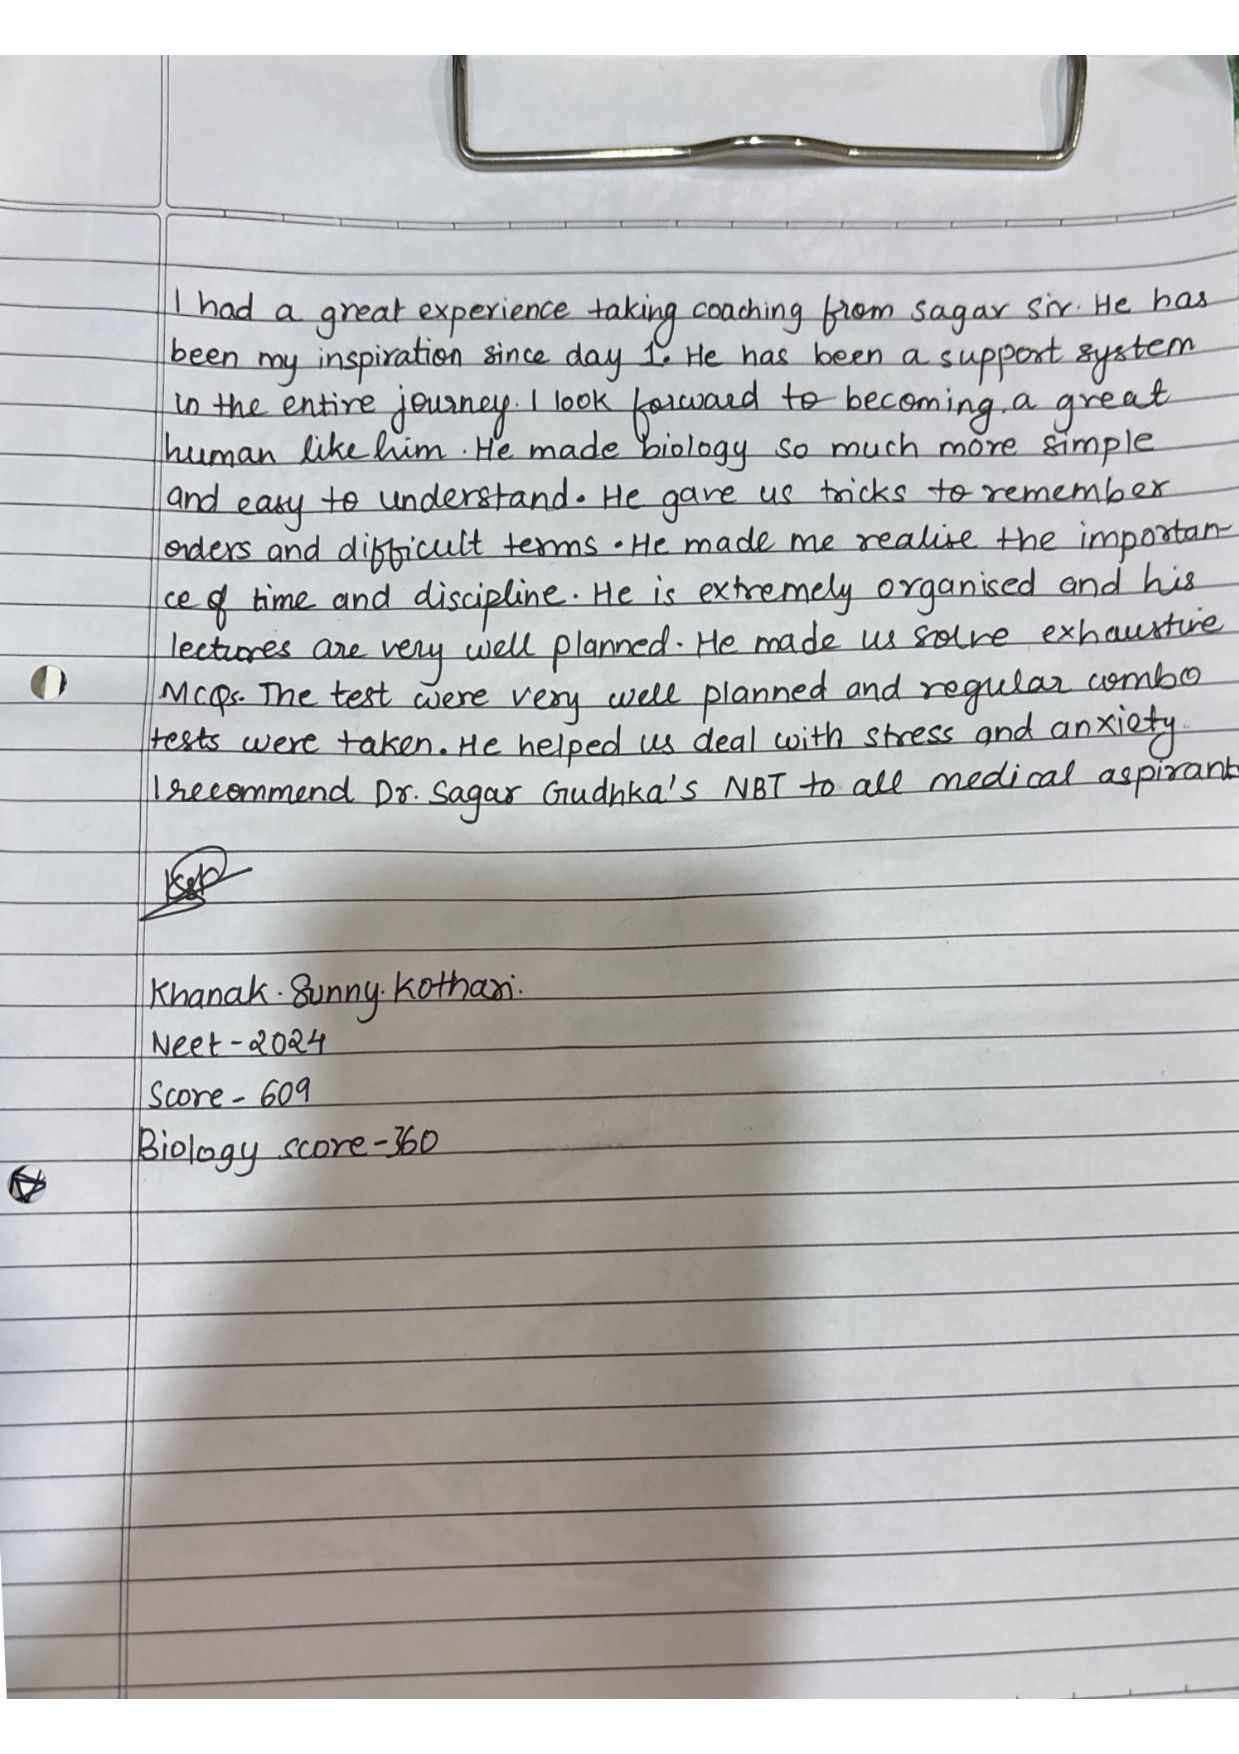 I had a great experience taking coaching from sagar sir. He has
been my inspiration since day 1. He has been a support system
in the entire journey. I look forward to becoming a great
human like him. He made biology so much more simple
and easy to understand. He gave us tricks to remember
orders and difficult terms. He made me realise the importan-
ce of time and discipline. He is extremely organised and his
lectures are very well planned. He made us solve exhaustive
MCQs. The test were very well planned and regular combo
tests were taken. He helped us deal with stress and anxiety.
I recommend Dr. Sagar Gudhka's NBT to all medical aspirants
Khanak. Sunny. Kothari.
Neet - 2024
Score - 609
Biology score - 360